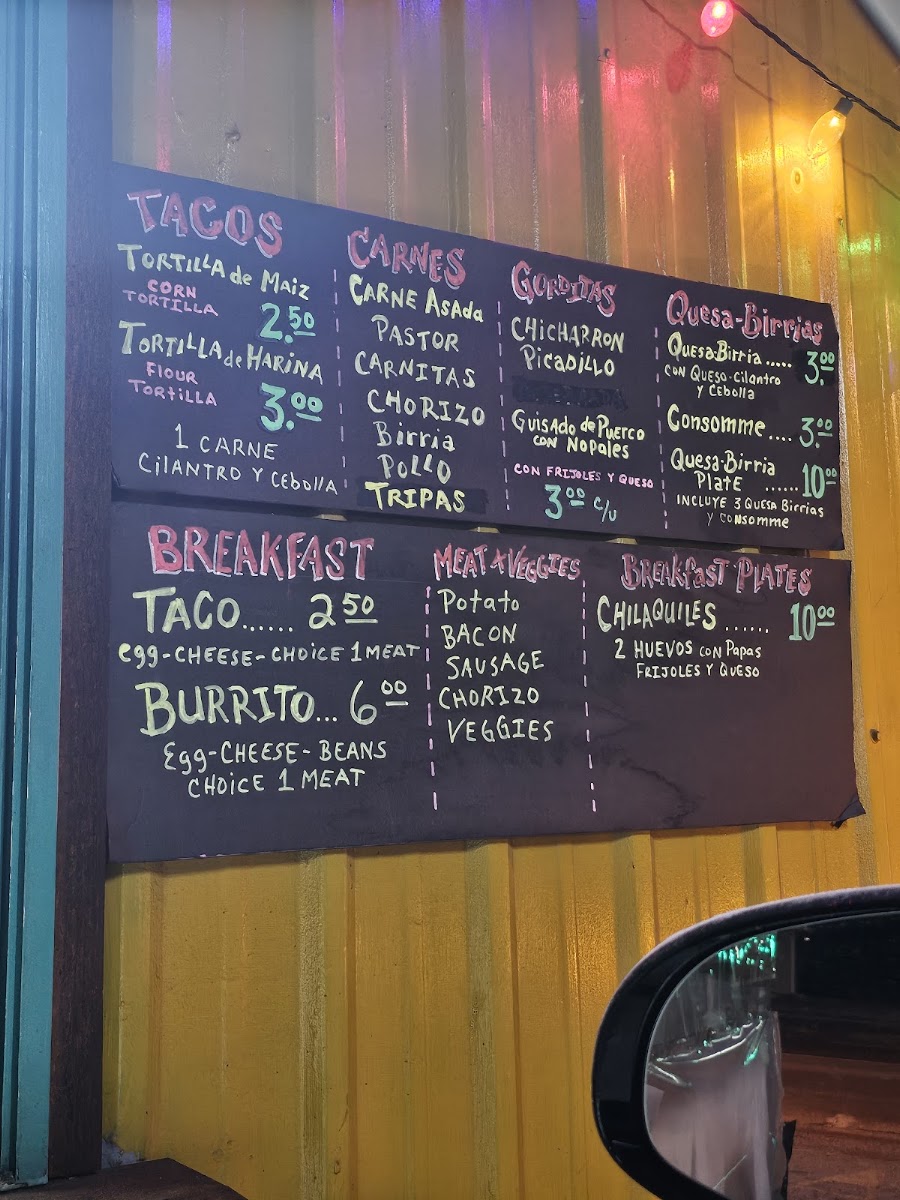 TACOS
TORTILLA de MAIZ
CORN
TORTILLA
2.50
TORTILLA de HARINA
FLOUR
TORTILLA
3.00
1 CARNE
CILANTRO Y CEBOLLA
CARNES
CARNE ASADA
PASTOR
CARNITAS
CHORIZO
Birria
POLLO
TRIPAS
GORDITAS
CHICHARRON
PICADILLO
GUISADO de PUERCO
CON NOPALES
CON FRIJOLES Y QUESO
3.00 c/u
Quesa-Birrias
QuesaBirria..... 3.00
CON QUESO-Cilantro
y Cebolla
Consomme.... 3.00
Quesa-Birria
PLATE ......10.00
INCLUYE 3 QUESA Birrias
y CONSOMME
BREAKFAST
TACO...... 2 50
egg-CHEESE-CHOICE 1 MEAT
BURRITO... 6 00
Egg-CHEESE-BEANS
CHOICE 1 MEAT
MEAT & VEGGIES
Potato
BACON
SAUSAGE
CHORIZO
VEGGIES
BREAKFAST PLATES
CHILAQUILES ...... 10 00
2 HUEVOS CON Papas
FRIJOLES Y QUESO